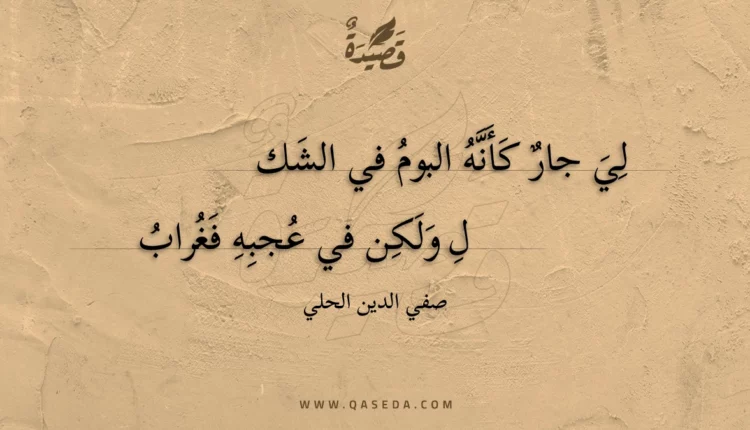 قَصِيدَةٌ
لِيَ جارٌ كَأَنَّهُ البومُ في الشَك
لِ وَلَكِن في عُجبِهِ فَغُرابُ
صفي الدين الحلي
WWW.QASEDA.COM